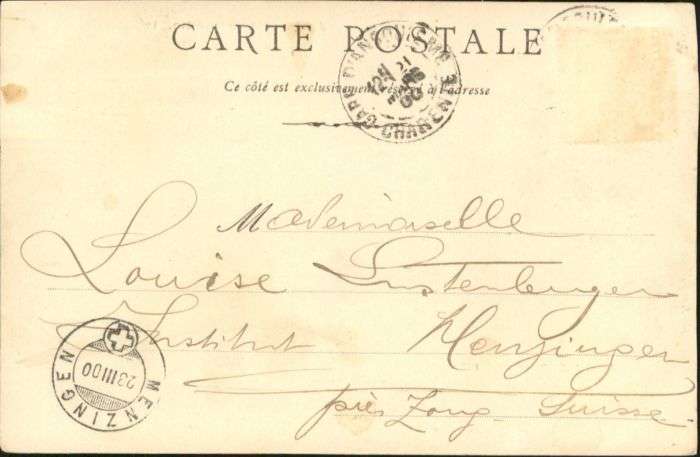 CARTE POSTALE
Ce côté est exclusivement réservé à l'adresse
GARE D'ANGOULEME
21
MARS
00
CHARENTE
Mademoiselle
Louise Lustenberger
Institut Menzingen
près Zoug Suisse
MENZINGEN
23 III 00